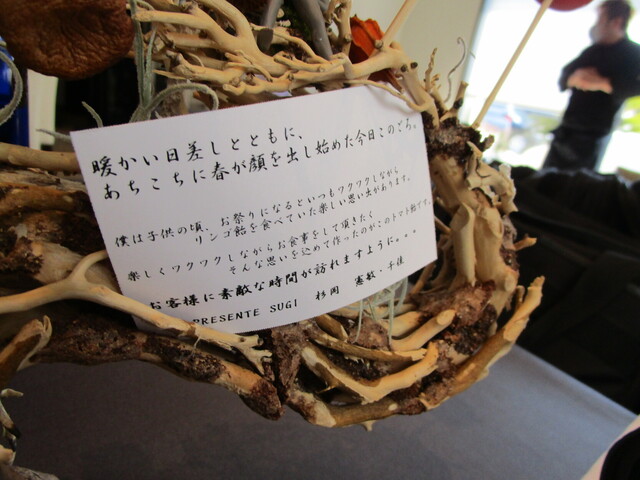 暖かい日差しとともに、
あちこちに春が顔を出し始めた今日このごろ。
僕は子供の頃、お祭りになるといつもワクワクしながら
リンゴ飴を食べていた楽しい思い出があります。
楽しくワクワクしながらお食事をして頂きたく
そんな思いを込めて作ったのがこのトマト飴です。
お客様に素敵な時間が訪れますように。。。
PRESENTE SUGI 杉岡 憲敏・千佳